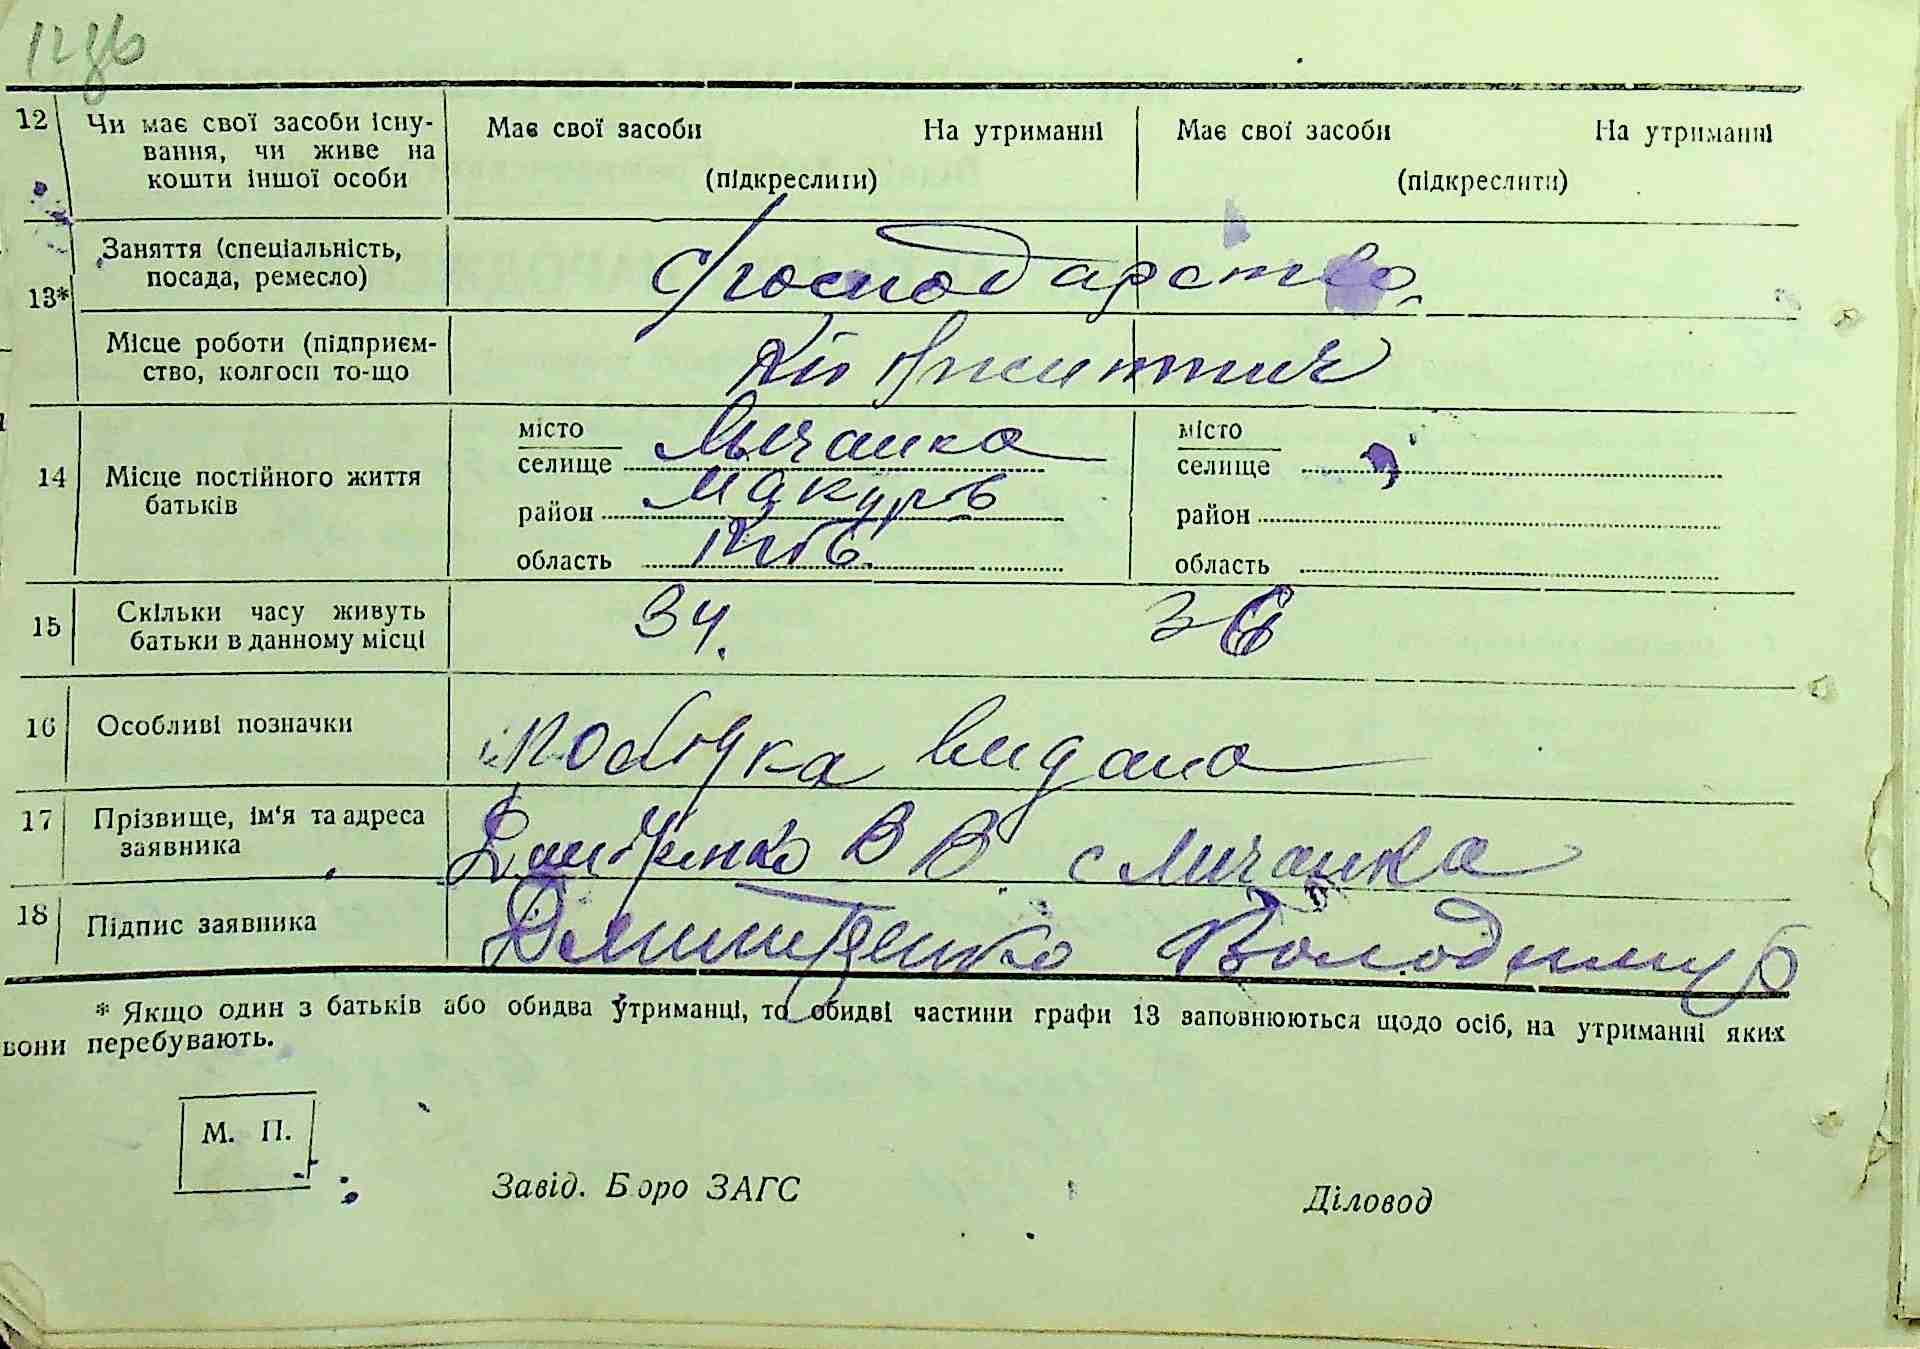 12 Чи має свої засоби існу-
вання, чи живе на
кошти іншої особи
Має свої засоби На утриманні
(підкреслити)
Має свої засоби На утриманні
(підкреслити)
13*
Заняття (спеціальність,
посада, ремесло)
с/господарство
Місце роботи (підприєм-
ство, колгосп то-що
14 Місце постійного життя
батьків
місто
селище Личанка
район Макарів
область Київ.
місто
селище
район
область
15 Скільки часу живуть
батьки в данному місці
34. 36
16 Особливі позначки
видана
17 Прізвище, ім‘я та адреса
заявника
Дмитренко В В. с Личанка
18 Підпис заявника
Дмитренко Володимир
* Якщо один з батьків або обидва утриманці, то обидві частини графи 13 заповнюються щодо осіб, на утриманні яких
вони перебувають.
М. П.
Завід. Бюро ЗАГС
Діловод